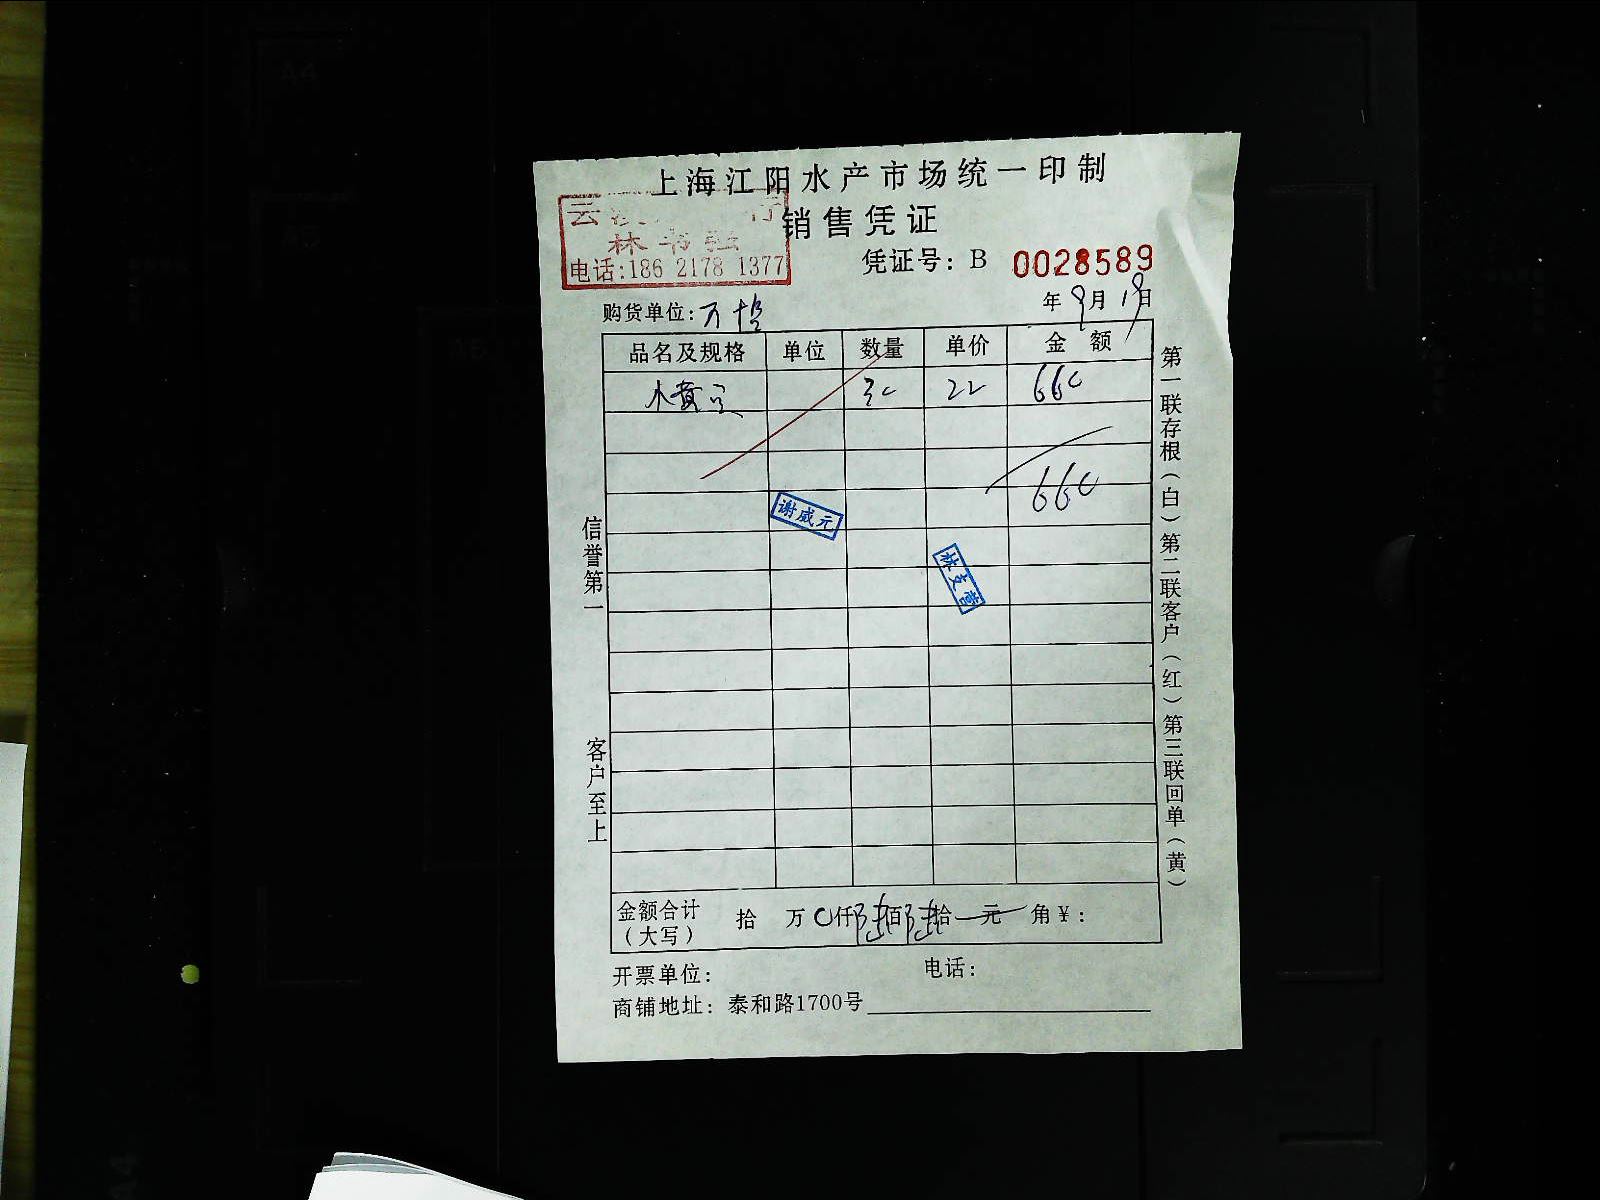 上海江阳水产市场统一印制
销售凭证
云 行
林
电话:186 2178 1377
凭证号: B 0028589
购货单位: 万
年 9月 19日
品名及规格 单位 数量 单价 金额
小黄 30 22 660
660
谢威元
林支营
信誉第一
客户至上
第一联存根(白)第二联客户(红)第三联回单(黄)
金额合计
(大写)
拾 万 0仟陆佰陆拾 元 角 ¥:
开票单位:
电话:
商铺地址: 泰和路1700号